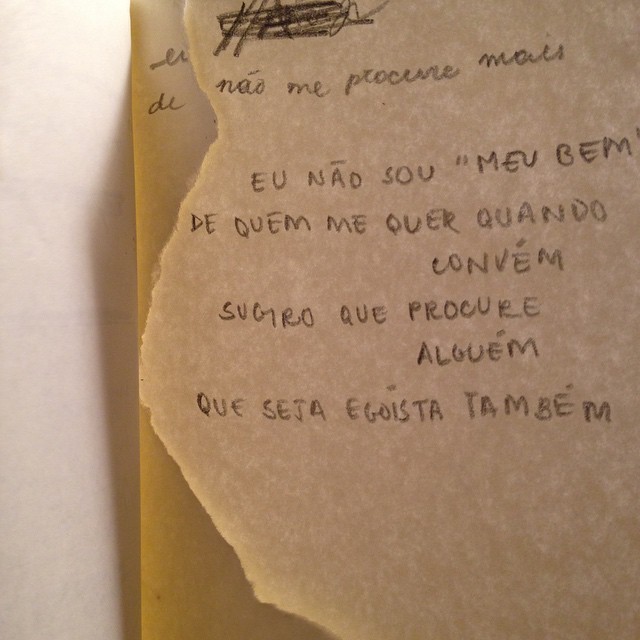 eu
não me procure mais
de
EU NÃO SOU "MEU BEM"
DE QUEM ME QUER QUANDO
CONVÉM
SUGIRO QUE PROCURE
ALGUÉM
QUE SEJA EGOÍSTA TAMBÉM